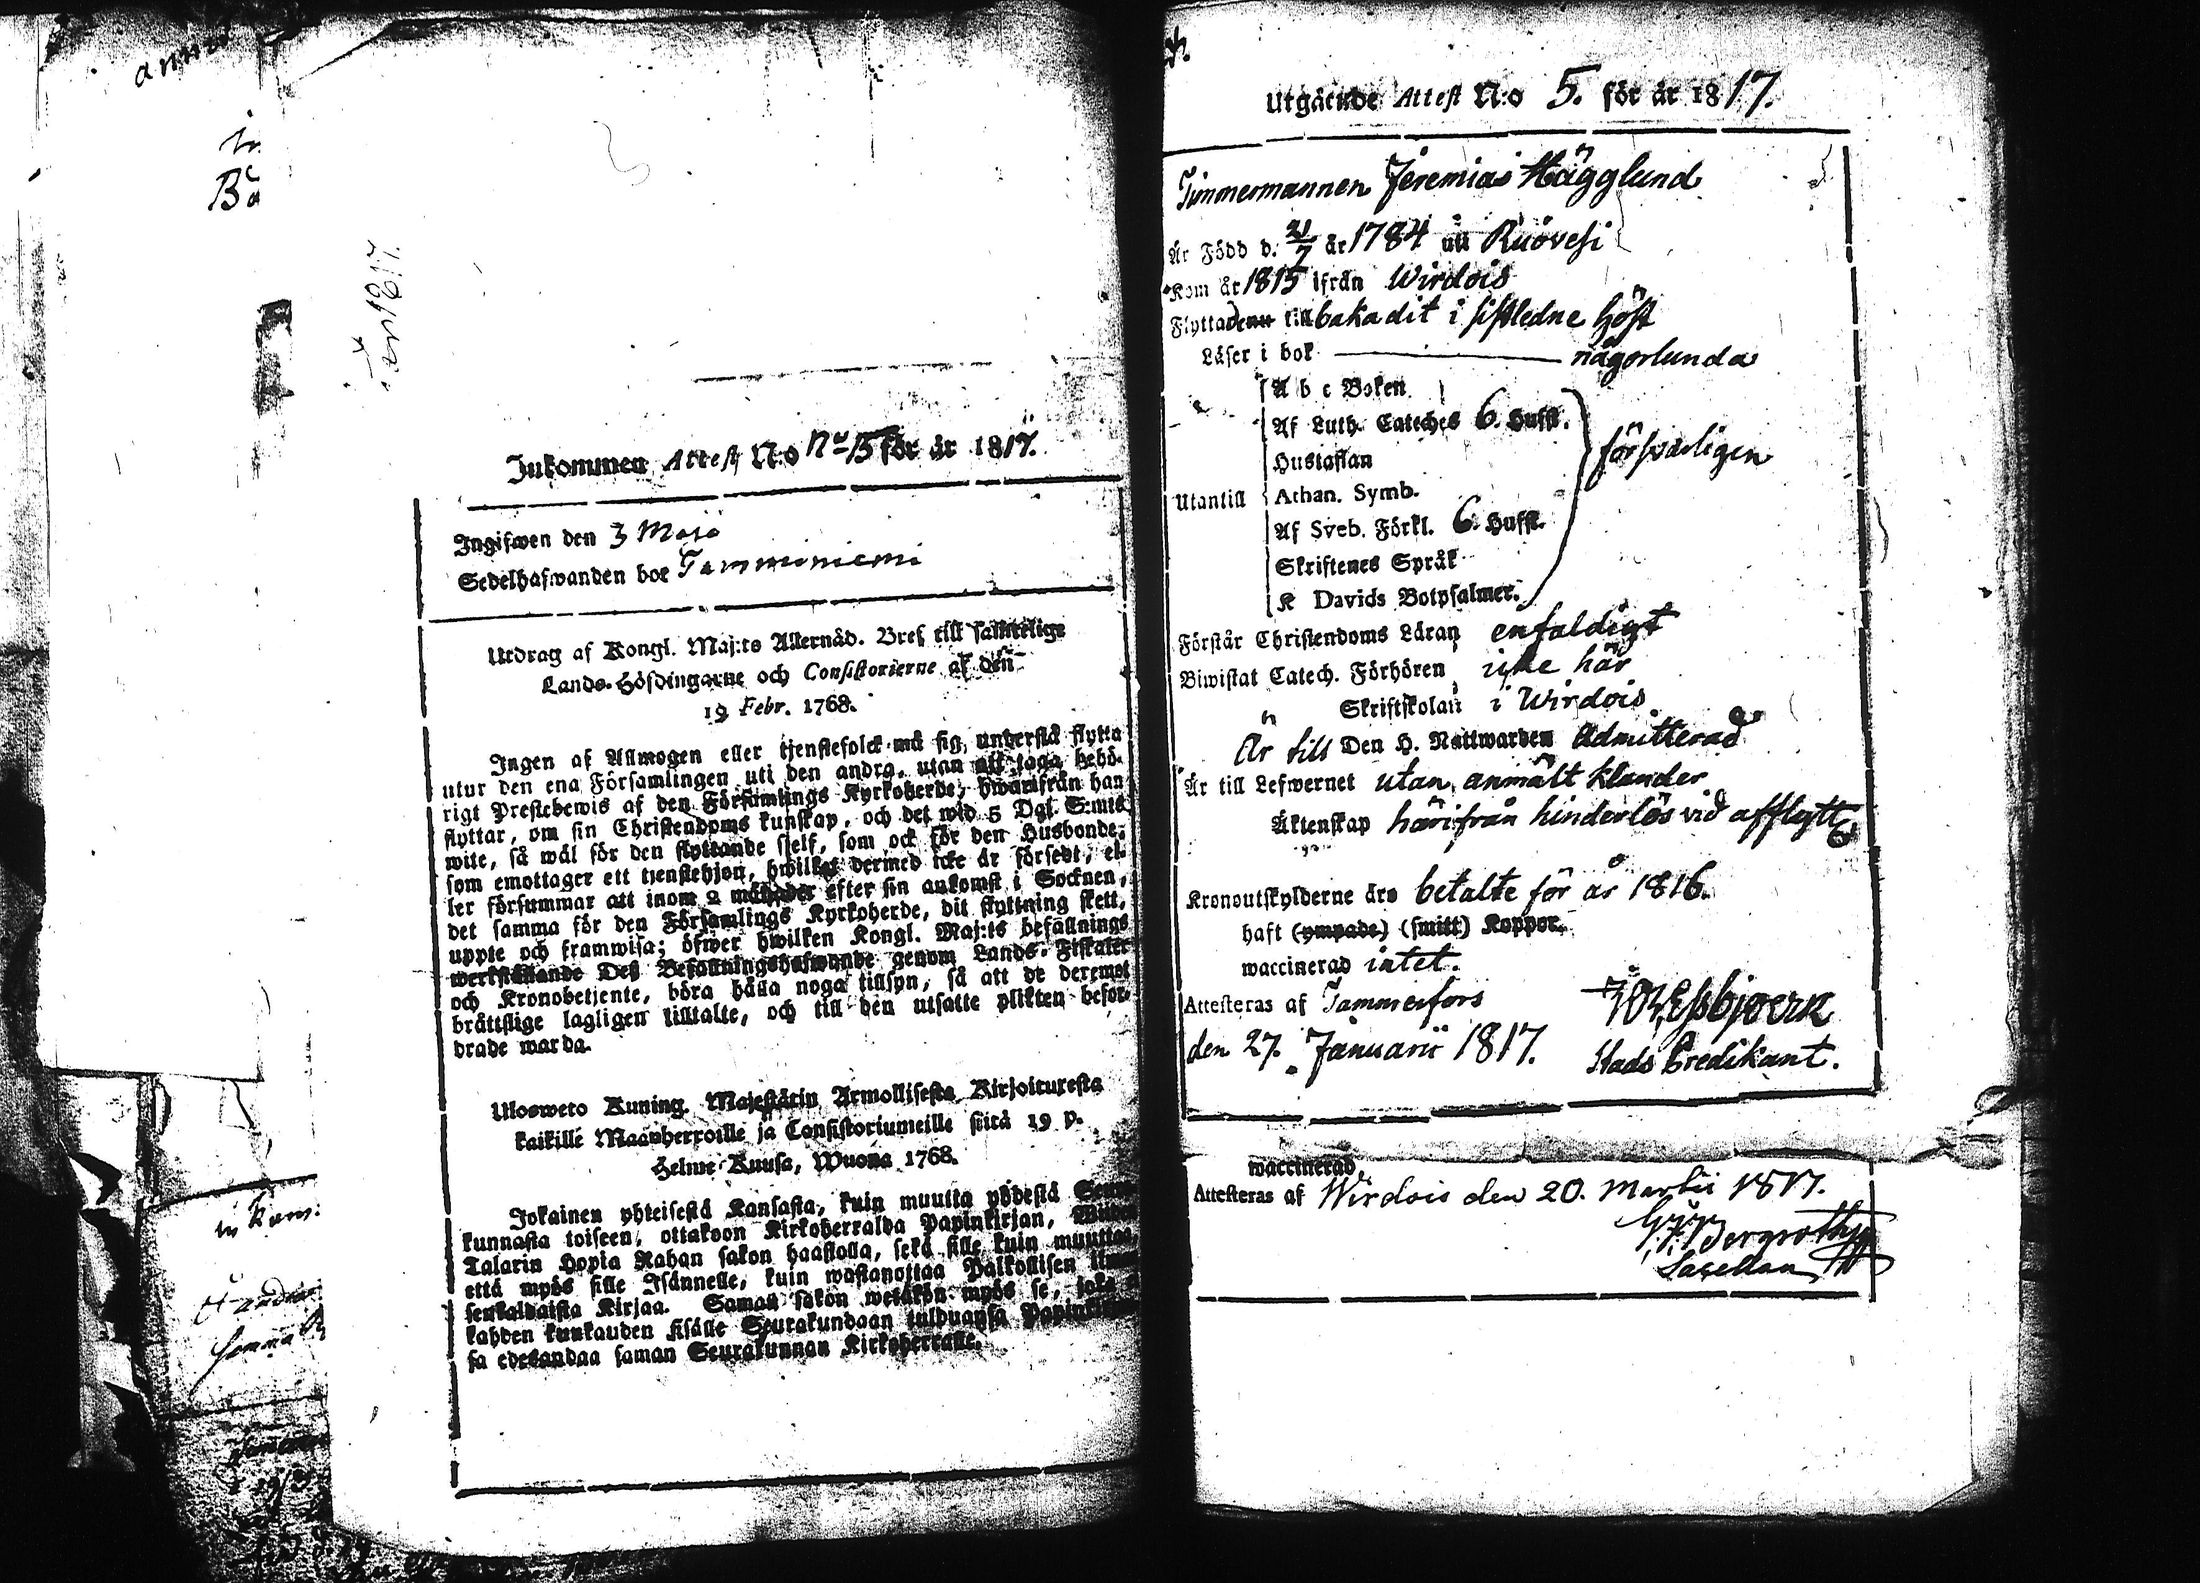 Inkommen Attest N:o N:o 15 för år 1817.
Ingifwen den 3 Maji
Sedelhafwanden bor Tamminiemi
Utdrag af Kongl. Maj:ts Allernåd. Bref till samtelige
Lands-Höfdingarne och Consistorierne af den
19 Febr. 1768.
Ingen af Allmogen eller tjenstefolck må sig understå flytta
utur den ena Församlingen uti den andra, utan att taga behö-
rigt Prestebewis af den Församlings Kyrkoherde, hwarifrån han
flyttar, om sin Christendoms kunskap, och det wid 5 Dal. S:mts
wite, så wäl för den flyttande sjelf, som ock för den Husbonde,
som emottager ett tjenstehjon, hwilket dermed icke är försedt, el-
ler försummar att inom 2 månader efter sin ankomst i Socknen,
det samma för den Församlings Kyrkoherde, dit flyttning skett,
uppte och framwisa; öfwer hwilken Kongl. Maj:ts befallnings
werkställande Deß Befallningshafwande genom Lands-Fiskaler
och Kronobetjente, böra hålla noga tillsyn, så att de deremot
bråttslige lagligen tilltalte, och till den utsatte plikten befor-
drade warda.
Ulosweto Kuning. Majestätin Armollisesta Kirjoituxesta
kaikille Maanherroille ja Consistoriumeille siitä 19 p.
Helme-Kuusa, Wuona 1768.
Jokainen yhteisestä Kansasta, kuin muutta yhdestä Seura-
kunnasta toiseen, ottakoon Kirkoherralda Papinkirjan, Wiiden
Talarin Hopia Rahan sakon haastolla, sekä sille kuin muuttaa,
että myös sille Isännelle, kuin wastanottaa Palkollisen ilman
senkaldaista Kirjaa. Saman sakon wetäkön myös se, joka
kahden kuukauden sisälle Seurakundaan tulduansa Papinkirjan-
sa edesandaa saman Seurakunnan Kirkoherralle.
Utgående Attest N:o 5. för år 1817.
Timmermannen Jeremias Hägglund
Är Född d. 21/7 år 1784 uti Ruovesi
Kom år 1815 ifrån Wirdois
Flyttade nu tillbaka dit i sistledne höst
Läser i bok någorlunda
A b c Boken
Af Luth. Cateches 6. Hufst.
Hustaflan
försvarligen
Utantill Athan. Symb.
Af Sveb. Förkl. 6. Hufst.
Skriftenes Språk
K Davids Botpsalmer.
Förstår Christendoms Läran enfaldigt
Biwistat Catech. Förhören icke här
Skriftskolan i Wirdois
Är till Den H. Nattwarden Admitterad
Är till Lefwernet utan anmält klander
Äktenskap härifrån hinderlös vid afflytt
Kronoutskylderne äro betalte för år 1816.
haft (ympade) (smitt) Koppor.
waccinerad intet.
Attesteras af Tammerfors
den 27. Januarii 1817.
Stads Predikant.
waccinerad
Attesteras af Wirdois den 20. Martii 1817.
Bergroth
Sacellan